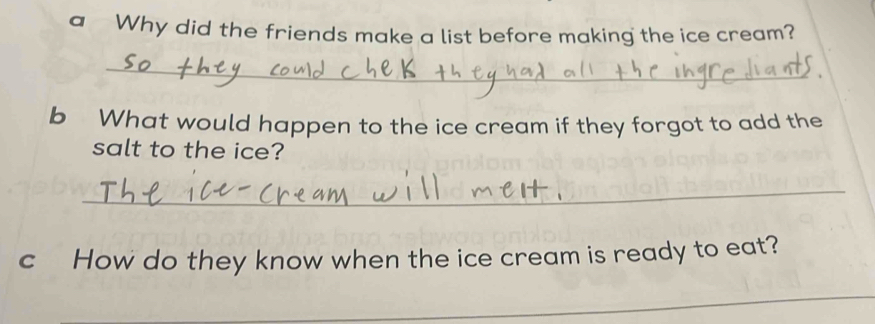 a Why did the friends make a list before making the ice cream?
so they could chek they had all the ingrediants.
b What would happen to the ice cream if they forgot to add the
salt to the ice?
The ice-cream will melt.
c How do they know when the ice cream is ready to eat?